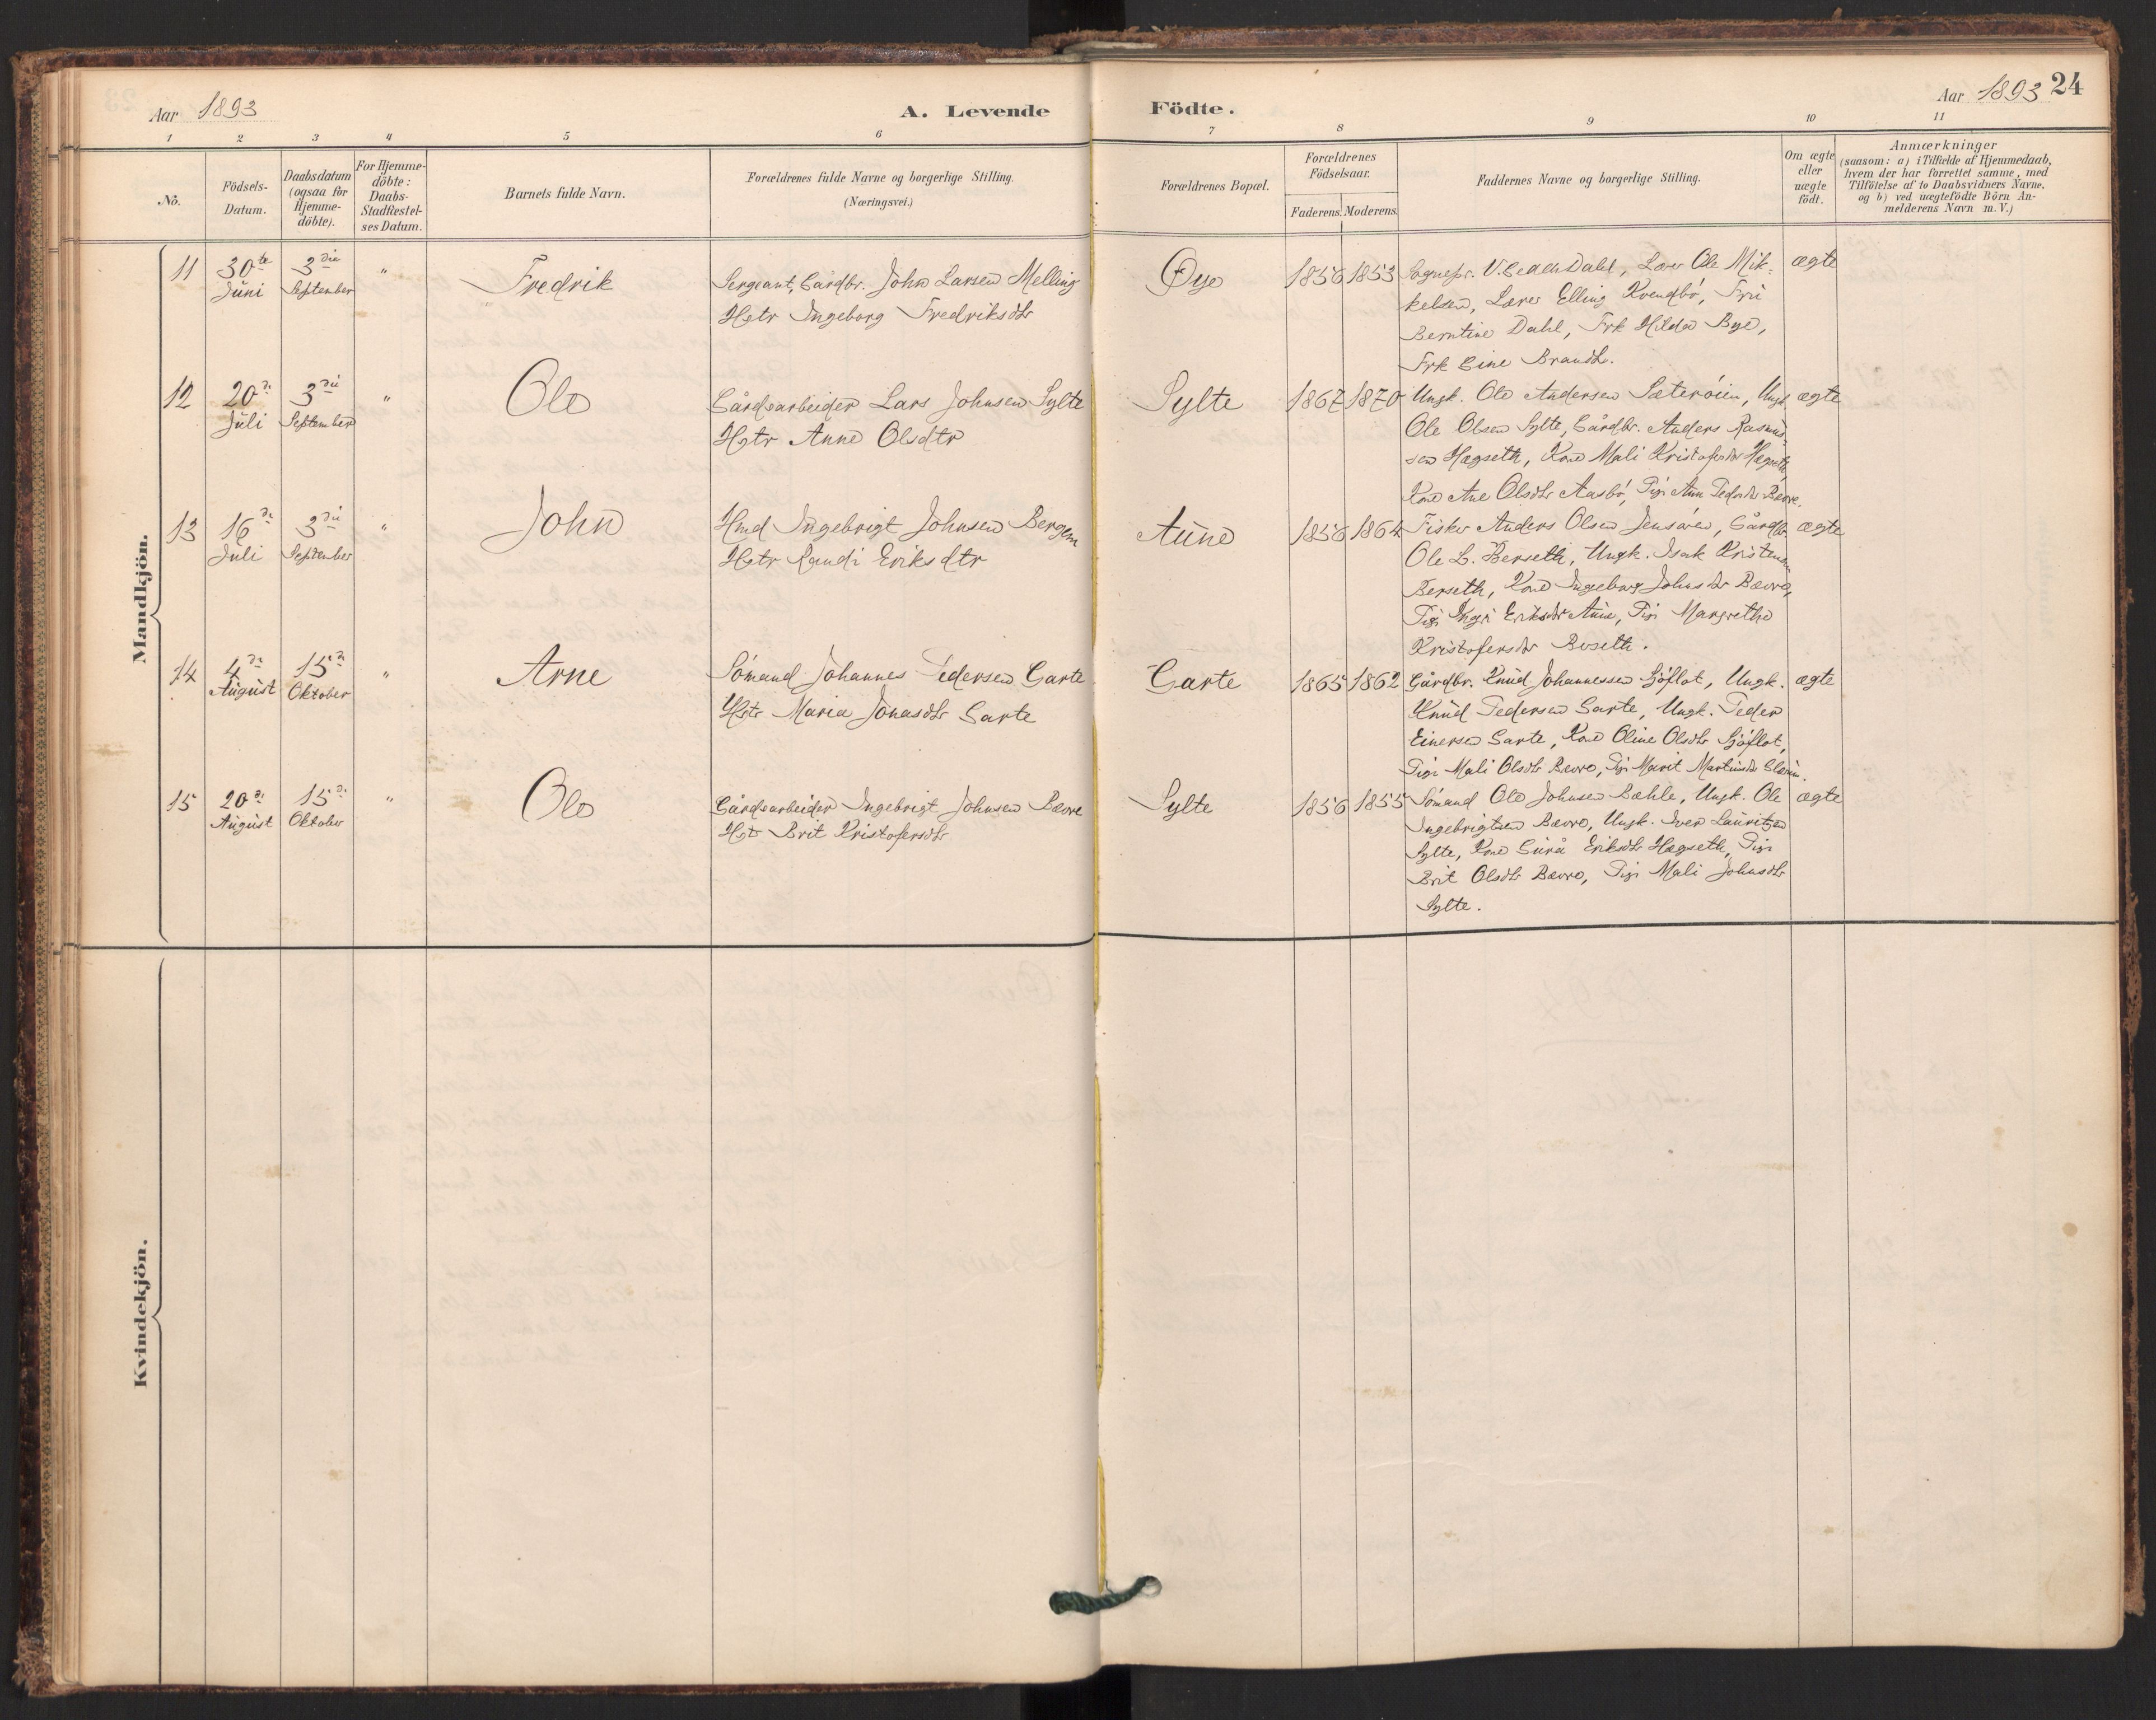 Aar 1893
A. Levende Födte.
Aar 1893 24
1 2 3 4 5 6 7 8 9 10 11
No.
Födsels-
Datum.
Daabsdatum
(ogsaa for
Hjemme-
döbte).
For Hjemme-
döbte:
Daabs-
Stadfæstel-
ses Datum.
Barnets fulde Navn.
Forældrenes fulde Navne og borgerlige Stilling.
(Næringsvei.)
Forældrenes Bopæl.
Forældrenes
Födselsaar.
Faderens. Moderens.
Faddernes Navne og borgerlige Stilling.
Om ægte
eller
uægte
födt.
Anmærkninger
(saasom: a) i Tilfælde af Hjemmedaab,
hvem der har forrettet samme, med
Tilföielse af to Daabsvidners Navne.
og b) ved uægtefödte Börn An-
melderens Navn m.V.)
Mandkjön.
11 30te Juni 3die September " Fredrik
Sergeant, Gårdbr. John Larsen Melling
Hstr Ingeborg Fredriksdtr
Øye 1856 1853
Sognepr. Dahl, Lærer Ole Mik-
kelsen, Lærer Elling Kvendbö, Fru
Berntine Dahl, Frk Hilda Bye,
Frk Brandt.
ægte
12 20de Juli 3die September " Ole
Gårdsarbeider Lars Johnsen Sylte
Hstr Anne Olsdtr
Sylte 1867 1870
Ungk. Ole Andersen Sæteröien, Ungk.
Ole Olsen Sylte, Gårdbr. Anders Rasmus-
sen Hægseth, Kone Mali Kristofersdtr Hægseth,
Kone Ane Olsdtr Aasbö, Pige Ane Pedersdtr Bævre.
ægte
13 16de Juli 3die September " John
Hmd Ingebrigt Johnsen Bergem
Hstr Randi Eriksdtr
Aune 1856 1864
Fisker Anders Olsen Gårdbr.
Ole L. Berseth, Ungk. Isak Kristensen
Berseth, Kone Ingeborg Johnsdtr Bævre,
Pige Eriksdtr Aune, Pige Margrethe
Kristofersdtr Beseth.
ægte
14 4de August 15de Oktober " Arne
Sömand Johannes Pedersen Garte
Hstr Maria Jonasdtr Garte
Garte 1865 1862
Gårdbr. Knud Johannessen Sjöflot, Ungk.
Knud Pedersen Garte, Ungk. Peder
Einersen Garte, Kone Oline Olsdtr Sjöflot,
Pige Mali Olsdtr Bævre, Pige Marit Martinsdtr
ægte
15 20de August 15de Oktober " Ole
Gårdsarbeider Ingebrigt Johnsen Bævre
Hstr Brit Kristofersdtr
Sylte 1856 1855
Sömand Ole Johnsen Bæhle, Ungk. Ole
Ingebrigtsen Bævre, Ungk. Iver Lauritzen
Sylte, Kone Guru Eriksdtr Hægseth, Pige
Brit Olsdtr Bævre, Pige Mali Johnsdtr
Sylte.
ægte
Kvindekjön.